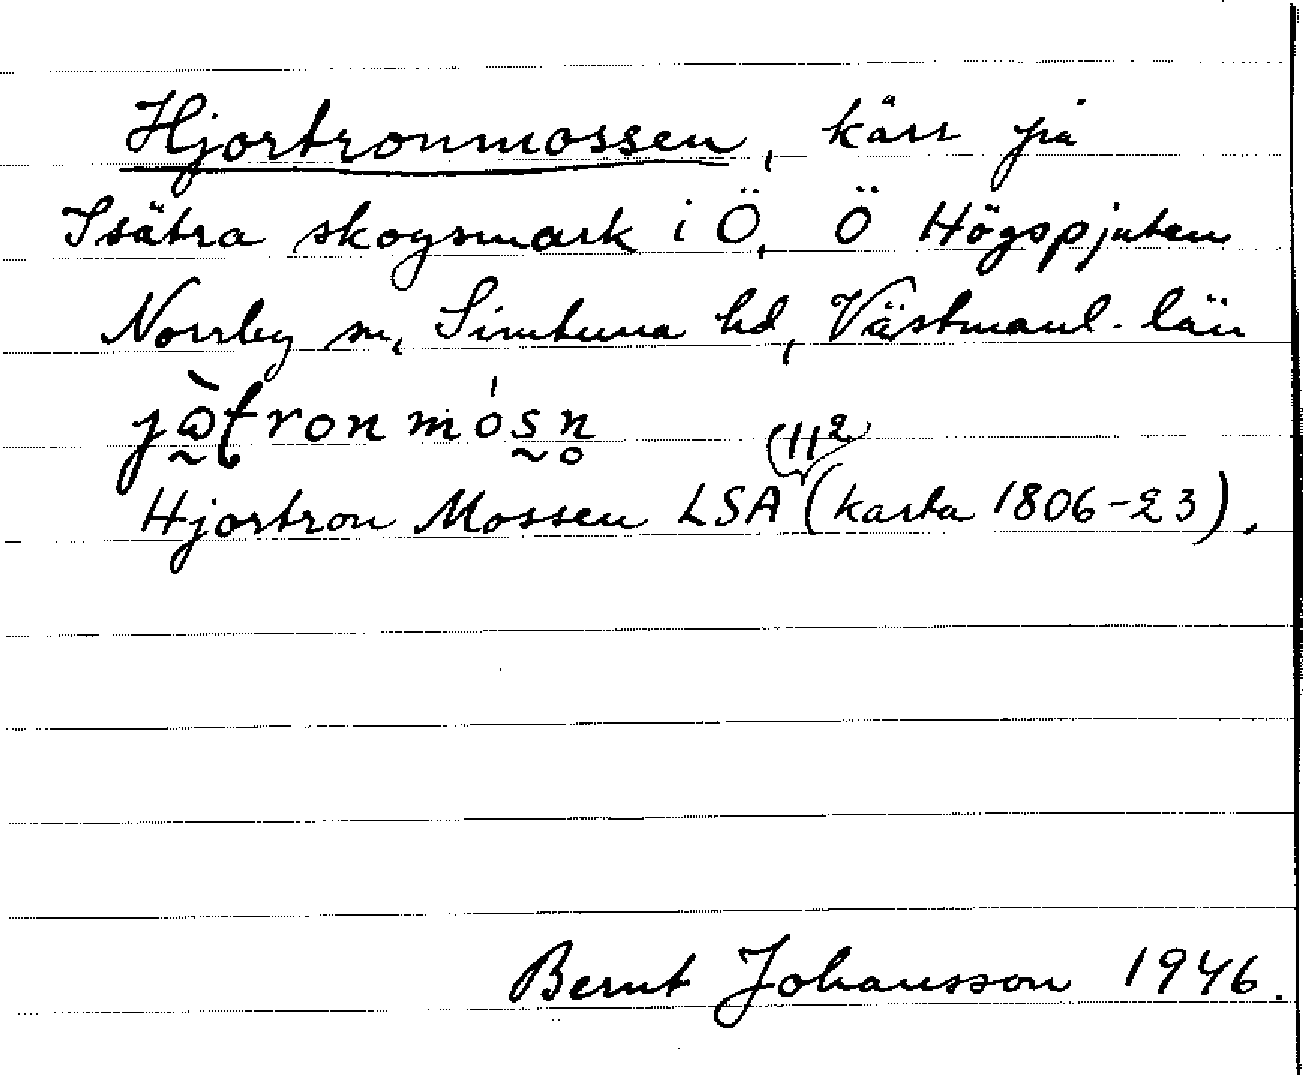 Hjortronmossen, kärr på
Isätra skogsmark i Ö, Ö Högspjuten
Norrby sn, Simtuna hd, Västmanl. län
jò̰ʈronmósn̥
(11²)
Hjortron Mossen LSA (karta 1806-23).
Bernt Johansson 1946.